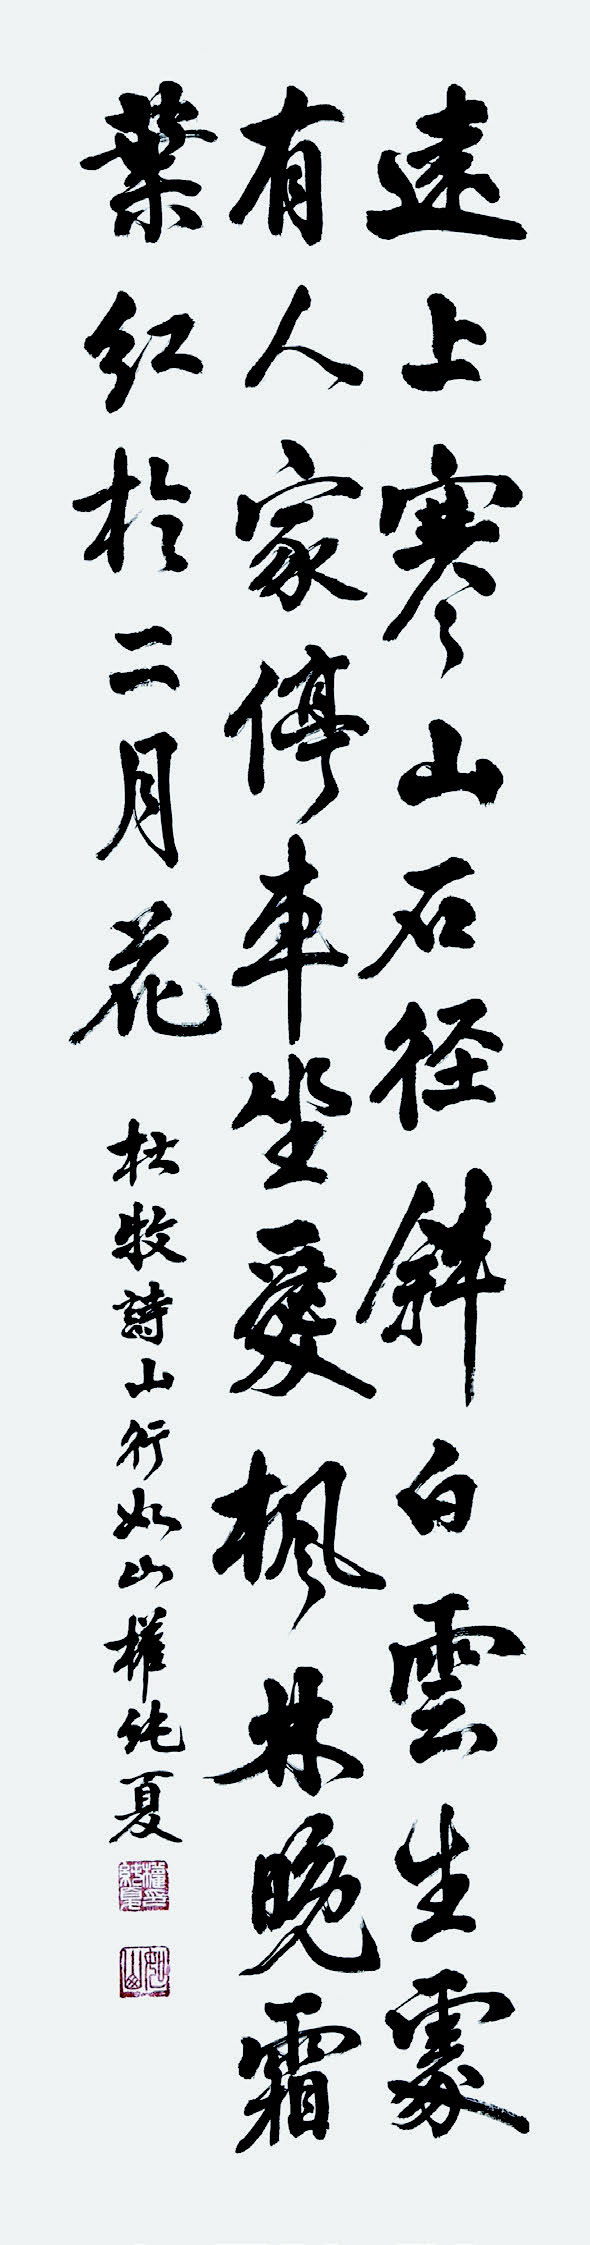 遠上寒山石径斜白雲生處
有人家停車坐愛楓林晚霜
葉紅於二月花
杜牧詩山行如山權純夏
權純夏印
如山